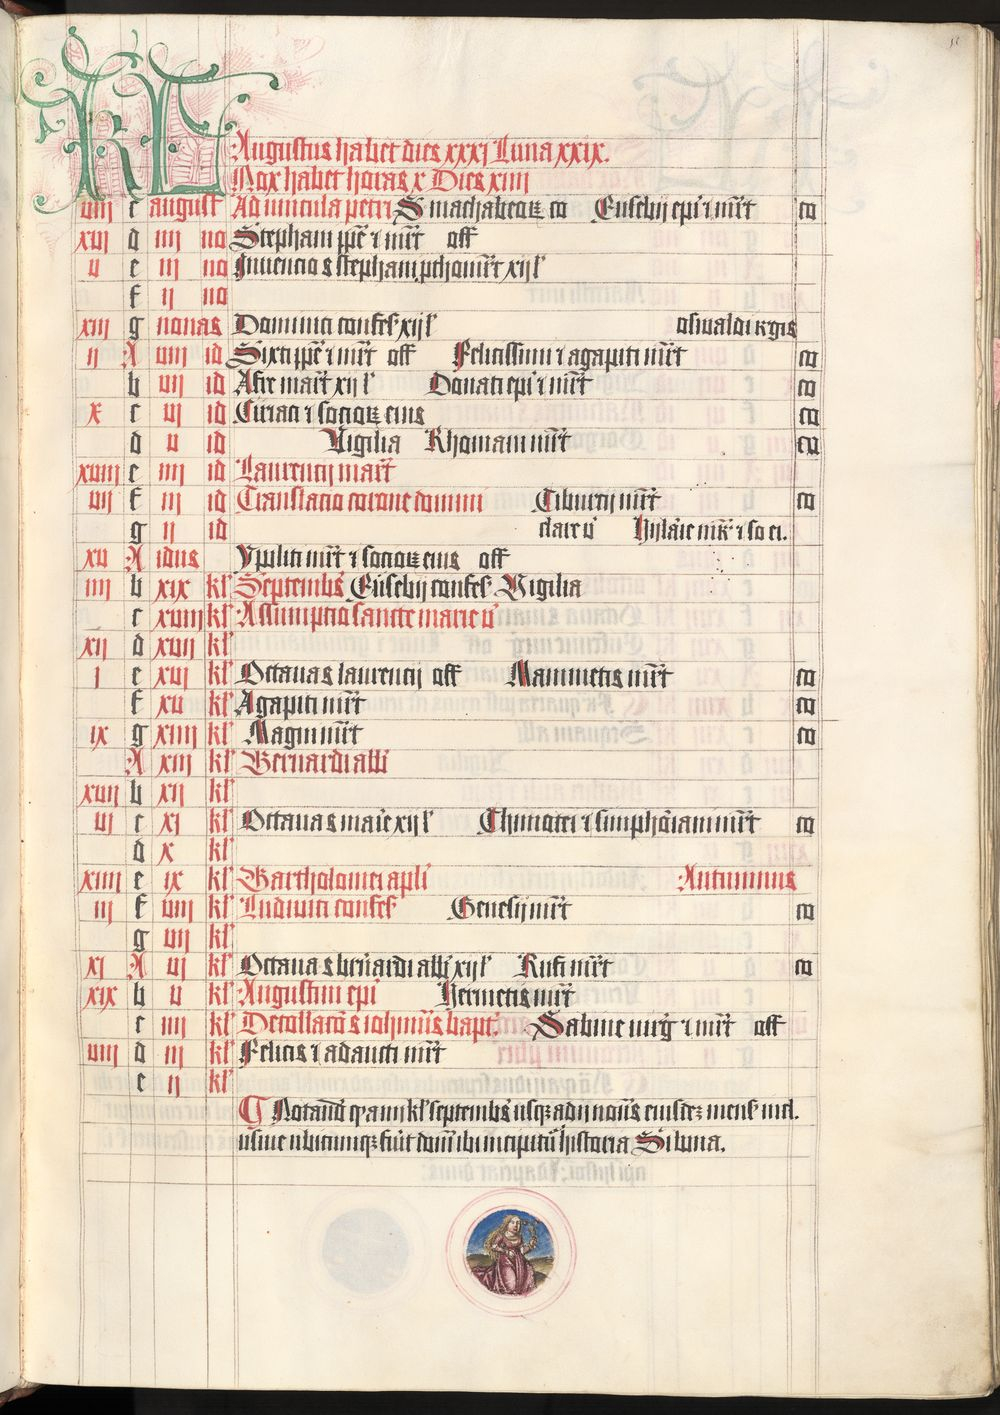 KL Augustus habet dies xxxi Luna xxix.
Nox habet horas x Dies xiiii
viii c august Ad vincula petri S machabeoꝝ co Eusebij epi ⁊ mr̄t co
xvi d iiii no Stephani ppe ⁊ mr̄t off
v e iii no Inuencio s stephani pthomr̄t xij l'
f ii no
xiii g nonas Dominici confes' xij l' oswaldi regis
ii A viii id Sixti ppe ⁊ mr̄t off Felicissimi ⁊ agapiti mr̄t co
b vii id Afre mart̄ xij l' Donati epi ⁊ mr̄t co
x c vi id Ciriaci ⁊ socioꝝ eius co
d v id Vigilia Rhomani mr̄t co
xviii e iiii id Laurencij mart̄
vii f iii id Translacio corone domini Tiburtij mr̄t co
g ii id clare v' Hylarie mr̄ ⁊ so ei.
xv A idus Ypoliti mr̄t ⁊ socioꝝ eius off
iiii b xix kl' Septembs' Eusebij confes' Vigilia
c xviii kl' Assumptio sancte marie v'
xii d xvii kl'
i e xvi kl' Octaua s laurencij off Mammetis mr̄t co
f xv kl' Agapiti mr̄t co
ix g xiiii kl' Magni mr̄t co
A xiii kl' Bernardi abb̄i
xvii b xii kl'
vi c xi kl' Octaua s marie xij l' Thimothei ⁊ simphoriani mr̄t co
d x kl'
xiiii e ix kl' Bartholomei apli Autumnus
iii f viii kl' Ludiuici confes' Genesij mr̄t co
g vii kl'
xi A vi kl' Octaua s bernardi abb̄ xij l' Rufi mr̄t co
xix b v kl' Augustini epi Hermetis mr̄t
c iiii kl' Decollaco s iohannis bapt. Sabine virg' ⁊ mr̄t off
viii d iii kl' Felicis ⁊ adaucti mr̄t
e ii kl'
¶ Notand' kl' septembs' usqꝫ ad nonas eiusdeꝫ mens' incl.
usiue ubicumqꝫ fuit domibi incipitur historia Si bona.